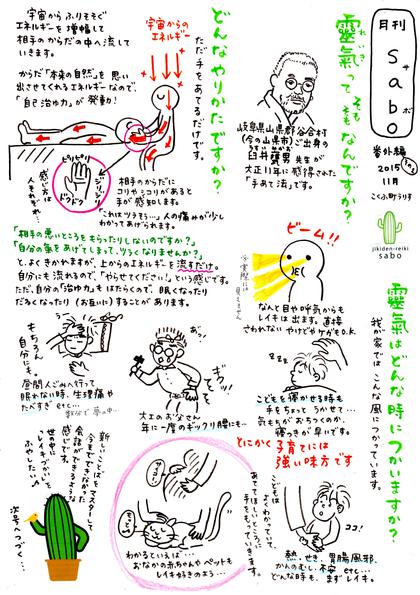 月刊
サボ
sabo
番外編
その2
2015
11月
こくふ町うりす
jikiden-reiki
sabo
靈氣って
れいき
そもそも
なんですか?
岐阜県山県郡谷合村
(今の山県市)ご出身の
臼井甕男先生が
うすい みかお
大正11年に感得された
「手あて法」です。
どんなやりかたですか?
ただ手をあてるだけです。
宇宙からの
エネルギー
宇宙からふりそそぐ
エネルギーを増幅して
相手のからだの中へ流して
いきます。
からだ「本来の自然」を思い
出させてくれるエネルギーなので、
「自己治ゆ力」が発動!
ピリピリ
ジンジン
ドクドク
感じ方は
人それぞれ…
相手のからだに
コリやシコリがあると
手が感知します。
「これはツラそう…」人の痛みが少し
わかってあげられます。
「相手の悪いところをもらったりしないのですか?」
「自分の氣をあげてしまって、ツラくなりませんか?」
と、よくきかれますが、上からのエネルギーを流すだけ。
自分にも流れるので、「やらせてください!」という感じです。
ただ、自分の「治ゆ力」もはたらくので、眠くなったり
だるくなったり(お互いに)することがあります。
ビーム!!
※実際には
見えません
なんと目や呼気からも
レイキは出ます。直接
さわれない やけどやケガもO.K.
靈氣はどんな時につかいますか?
我が家ではこんな風につかっています。
ZZZZ
こどもを寝かせる時も
手をちょっとうかせて…
気もちがおちつくのか、
寝つきが早いです。
あ"っ!
ギクッ
大工のお父さん
年に一度のギックリ腰にも…
もちろん
自分にも。
昼間人ごみへ行って
眠れない時、生理痛や
たべすぎ etc…
数分で夢の中…
とにかく子育てには
強い味方です
こどもは
よくわかっていて、
あててほしいところに
手をもっていきます。
ココ!
熱・せき・胃腸風邪
かんのむし・不安 etc…
どんな時も、まずレイキ。
わかるといえば…
おなかの赤ちゃんやペットも
レイキ好きのよう…
新しいことばをマスターして
今までできなかった
会話ができるような
感じです。
世の中の
「レイキ」を
ふやしたい。
次号へつづく…